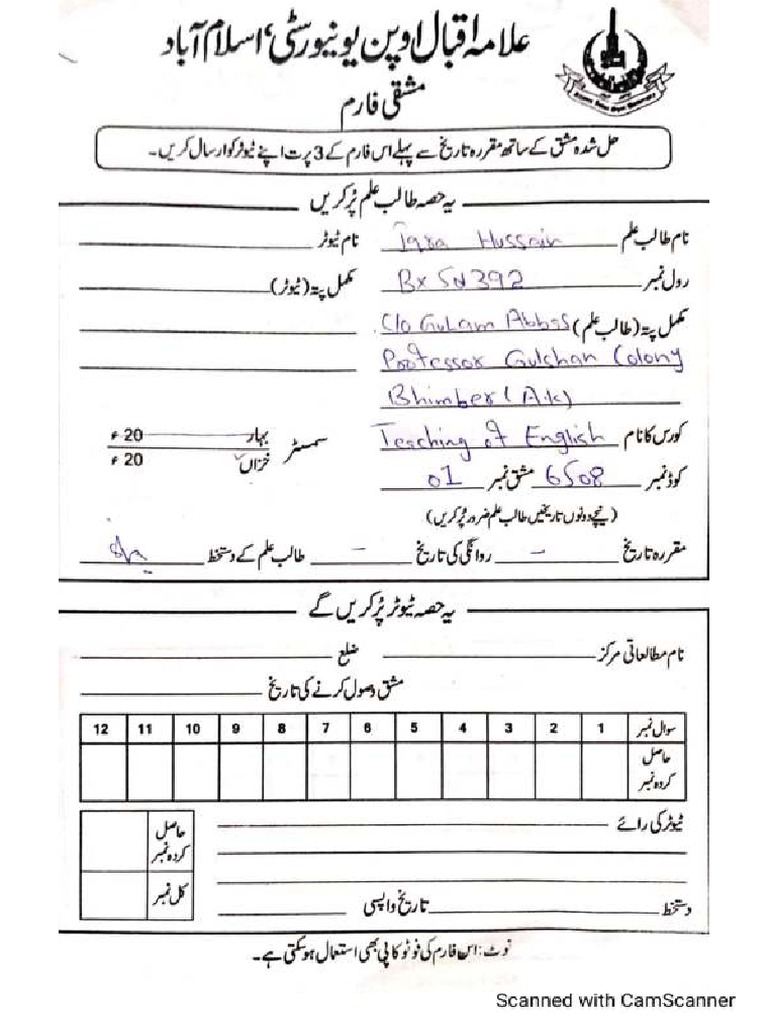 علامہ اقبال اوپن یونیورسٹی، اسلام آباد
مشقی فارم
حل شدہ مشق کے ساتھ مقررہ تاریخ سے پہلے اس فارم کے 3 پرت اپنے ٹیوٹر کو ارسال کریں۔
یہ حصہ طالب علم پُر کریں
نام طالب علم Iqra Hussain نام ٹیوٹر
رول نمبر مکمل پتہ (ٹیوٹر)
مکمل پتہ (طالب علم) C/o Gulam Abbas
Professor Gulshan Colony
Bhimber (AK)
کورس کا نام Teaching of English سمسٹر بہار 20ء
خزاں 20ء
کوڈ نمبر 6508 مشق نمبر 01
(نیچے دونوں تاریخیں طالب علم ضرور پُر کریں)
مقررہ تاریخ - روانگی کی تاریخ - طالب علم کے دستخط
یہ حصہ ٹیوٹر پُر کریں گے
نام مطالعاتی مرکز ضلع
مشق وصول کرنے کی تاریخ
سوال نمبر 1 2 3 4 5 6 7 8 9 10 11 12
حاصل کردہ نمبر
ٹیوٹر کی رائے
حاصل کردہ نمبر
کل نمبر
دستخط تاریخ واپسی
نوٹ: اس فارم کی فوٹو کاپی بھی استعمال ہو سکتی ہے۔
Scanned with CamScanner